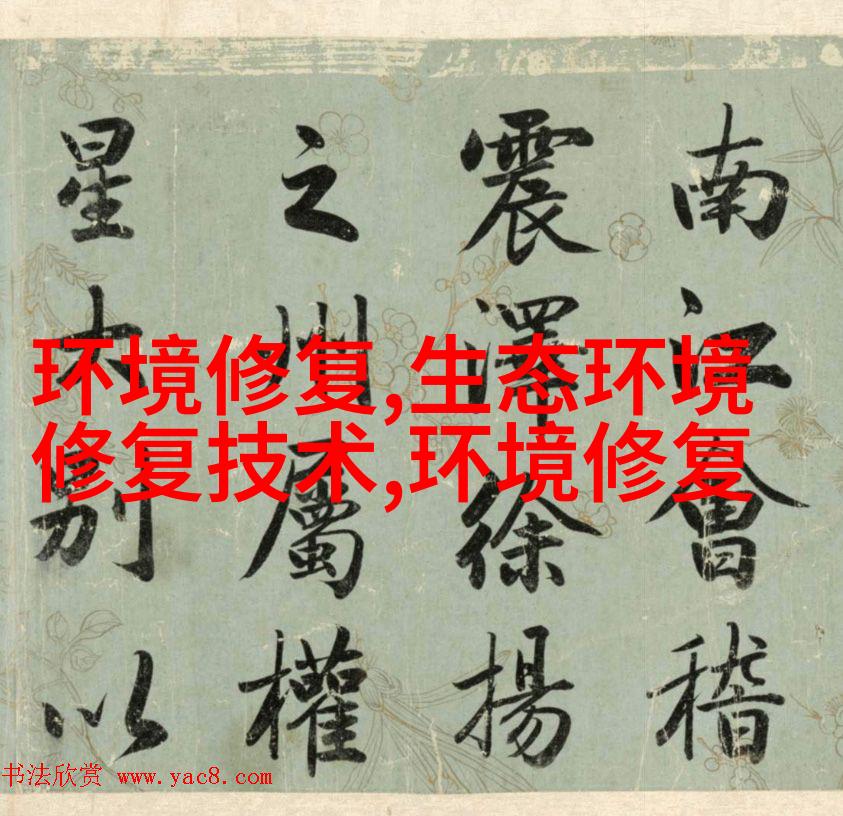 南江會稽
震澤徐揚
之州屬權
星大別以
环境修复,生态环境
修复技术,环境修复
书法欣赏 www.yac8.com